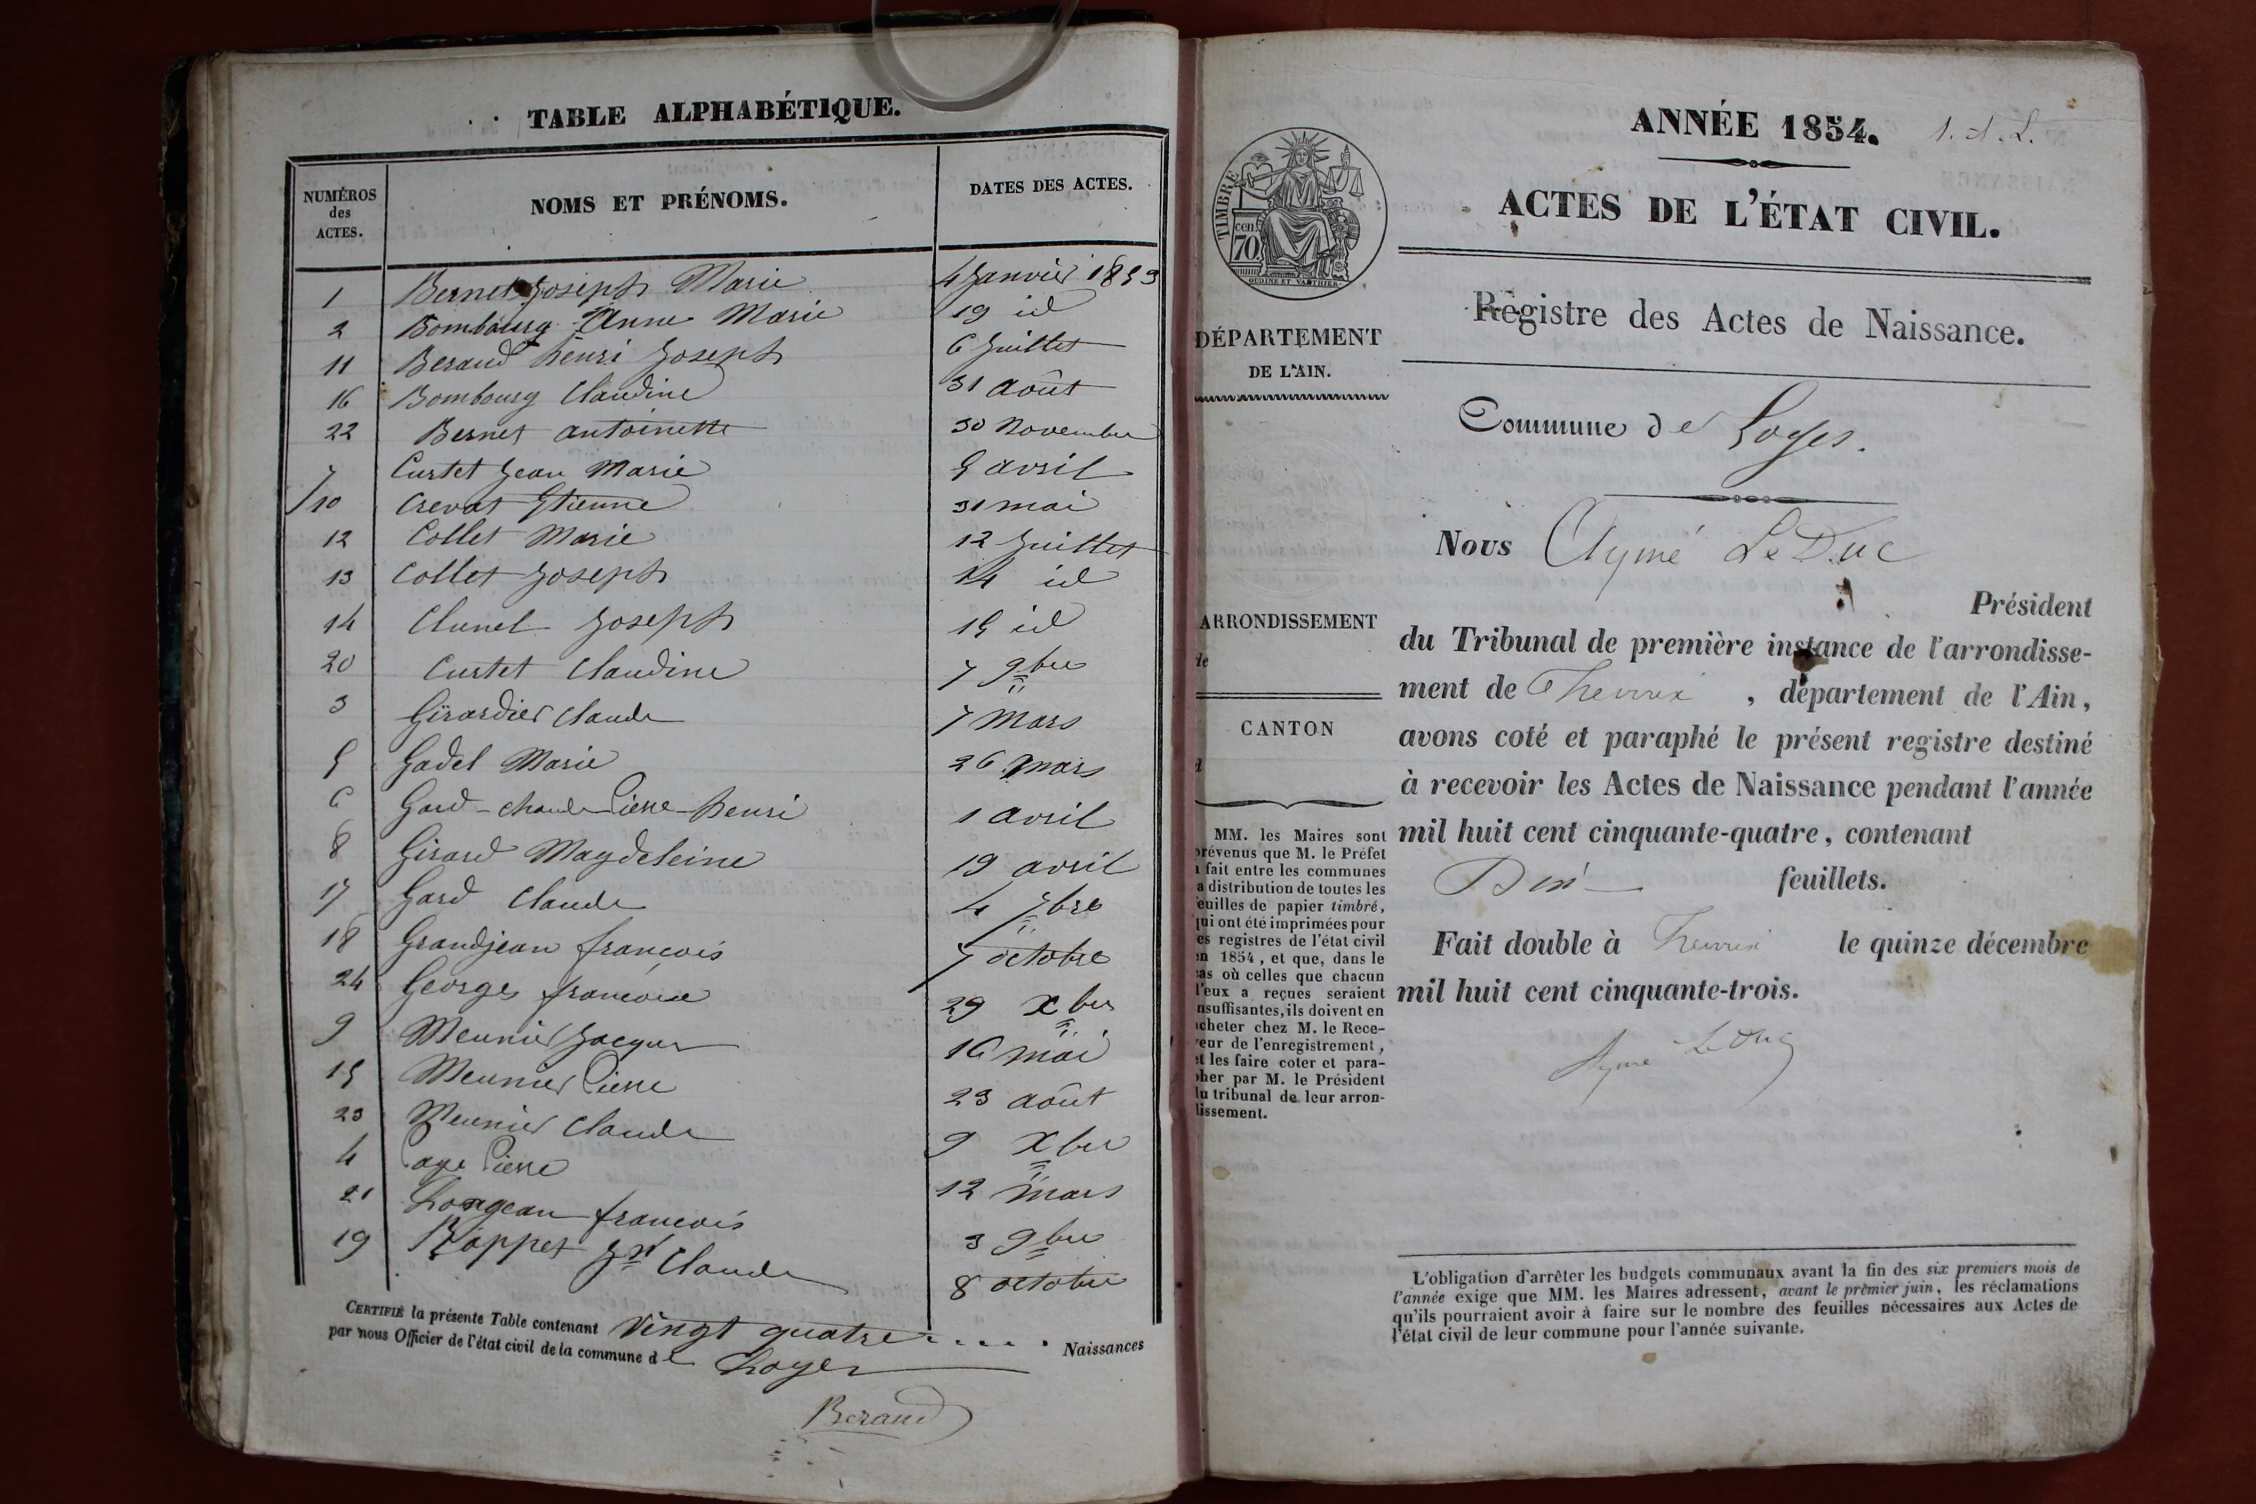 TABLE ALPHABÉTIQUE.
NUMÉROS des ACTES. NOMS ET PRÉNOMS. DATES DES ACTES.
1 Bernet Joseph Marie 4 Janvier 1853
2 Bombourg Anne Marie 19 id
11 Beraud henri Joseph 6 Juillet
16 Bombourg Claudine 31 août
22 Bernet antoinette 30 Novembre
7 Curtet Jean Marie 5 avril
10 Crevat Etienne 31 mai
12 Collet Marie 12 Juillet
13 Collet Joseph 14 id
14 Clunel Joseph 15 id
20 Curtet Claudine 7 9bre
3 Girardier Claude 7 Mars
5 Gadel Marie 26 mars
6 Gard Claude Pierre henri 1 avril
8 Girard Magdeleine 19 avril
17 Gard Claude 4 7bre
18 Grandjean francois 7 octobre
24 Georges francoise 29 Xbre
9 Meunier Jacques 16 mai
15 Meunier Pierre 23 août
23 Meunier Claude 9 Xbre
4 Page Pierre 12 mars
21 francois 3 9bre
19 Rappet Jn Claude 8 octobre
CERTIFIÉ la présente Table contenant Vingt quatre Naissances
par nous Officier de l'état civil de la commune de Loyes
Beraud
ANNÉE 1854. 1. A. L.
ACTES DE L'ÉTAT CIVIL.
TIMBRE
cen.
70
OUDINE ET VAUTHIER
Registre des Actes de Naissance.
DÉPARTEMENT
DE L'AIN.
Commune de Loyes.
Nous Aymé LeDuc
Président
ARRONDISSEMENT
de
du Tribunal de première instance de l'arrondisse-
ment de Trevoux, département de l'Ain,
CANTON
d
avons coté et paraphé le présent registre destiné
à recevoir les Actes de Naissance pendant l'année
mil huit cent cinquante-quatre, contenant
Dix feuillets.
Fait double à Trevoux le quinze décembre
mil huit cent cinquante-trois.
Aymé LeDuc
MM. les Maires sont
prévenus que M. le Préfet
a fait entre les communes
la distribution de toutes les
feuilles de papier timbré,
qui ont été imprimées pour
les registres de l'état civil
en 1854, et que, dans le
cas où celles que chacun
d'eux a reçues seraient
insuffisantes, ils doivent en
acheter chez M. le Rece-
veur de l'enregistrement,
et les faire coter et para-
pher par M. le Président
du tribunal de leur arron-
dissement.
L'obligation d'arrêter les budgets communaux avant la fin des six premiers mois de
l'année exige que MM. les Maires adressent, avant le premier juin, les réclamations
qu'ils pourraient avoir à faire sur le nombre des feuilles nécessaires aux Actes de
l'état civil de leur commune pour l'année suivante.